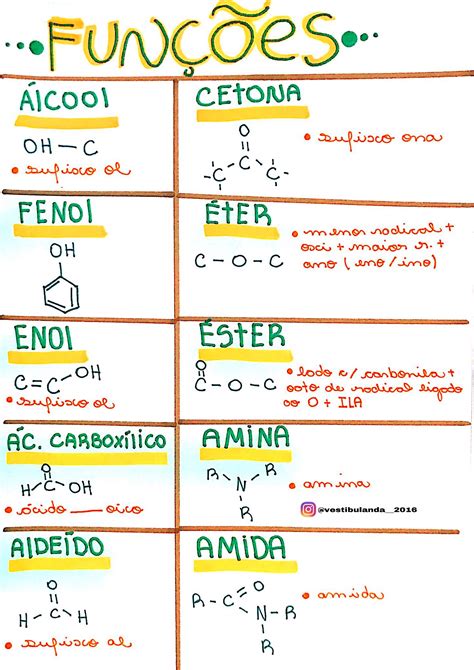 FUNÇÕES
ÁlCOOl
OH — C
• sufixo ol
CETONA
O
C
C
C
• sufixo ona
FENOl
OH
ÉTER
C - O - C
• menor radical +
oxi + maior r. +
ano (eno/ino)
ENOl
C = C - OH
• sufixo ol
ÉSTER
O
C - O - C
• lado c/ carbonila +
oato de radical ligado
ao O + ILA
ÁC. CARBOXílICO
O
H C OH
• ácido ___ oico
AMINA
R N R
R
• amina
@vestibulanda__2016
AlDEÍDO
O
H - C - H
• sufixo al
AMIDA
R - C = O
N - R
R
• amida